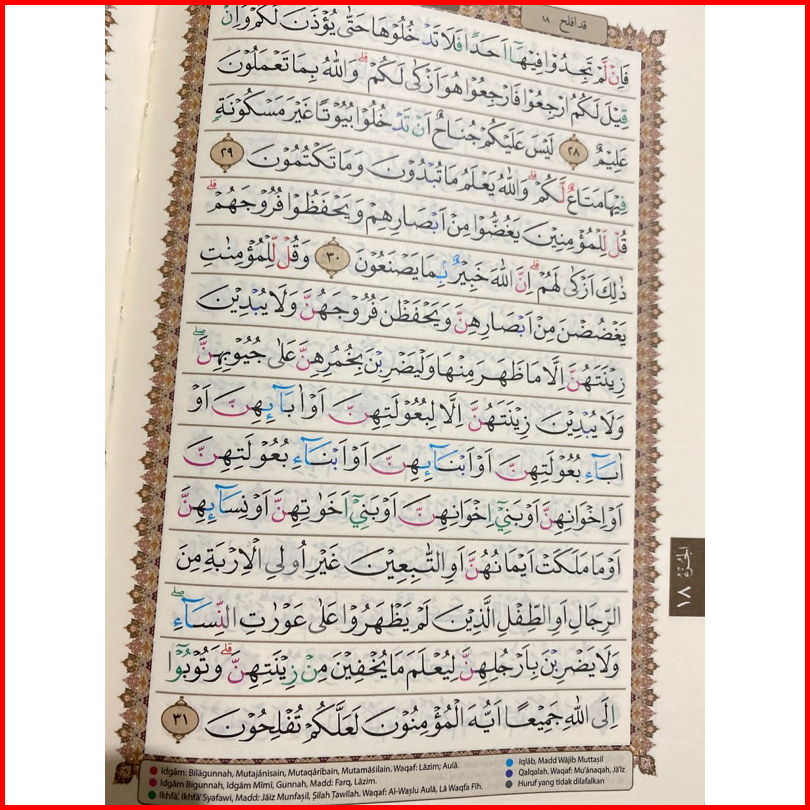 قد افلح ١٨
فَاِنْ لَّمْ تَجِدُوْا فِيْهَآ اَحَدًا فَلَا تَدْخُلُوْهَا حَتّٰى يُؤْذَنَ لَكُمْ وَاِنْ
قِيْلَ لَكُمُ ارْجِعُوْا فَارْجِعُوْا هُوَ اَزْكٰى لَكُمْ ۗ وَاللّٰهُ بِمَا تَعْمَلُوْنَ
عَلِيْمٌ ٢٨ لَيْسَ عَلَيْكُمْ جُنَاحٌ اَنْ تَدْخُلُوْا بُيُوْتًا غَيْرَ مَسْكُوْنَةٍ
فِيْهَا مَتَاعٌ لَّكُمْ ۗ وَاللّٰهُ يَعْلَمُ مَا تُبْدُوْنَ وَمَا تَكْتُمُوْنَ ٢٩
قُلْ لِّلْمُؤْمِنِيْنَ يَغُضُّوْا مِنْ اَبْصَارِهِمْ وَيَحْفَظُوْا فُرُوْجَهُمْ ۗ
ذٰلِكَ اَزْكٰى لَهُمْ ۗ اِنَّ اللّٰهَ خَبِيْرٌۢ بِمَا يَصْنَعُوْنَ ٣٠ وَقُلْ لِّلْمُؤْمِنٰتِ
يَغْضُضْنَ مِنْ اَبْصَارِهِنَّ وَيَحْفَظْنَ فُرُوْجَهُنَّ وَلَا يُبْدِيْنَ
زِيْنَتَهُنَّ اِلَّا مَا ظَهَرَ مِنْهَا وَلْيَضْرِبْنَ بِخُمُرِهِنَّ عَلٰى جُيُوْبِهِنَّ ۖ
وَلَا يُبْدِيْنَ زِيْنَتَهُنَّ اِلَّا لِبُعُوْلَتِهِنَّ اَوْ اٰبَاۤىِٕهِنَّ اَوْ
اٰبَاۤءِ بُعُوْلَتِهِنَّ اَوْ اَبْنَاۤىِٕهِنَّ اَوْ اَبْنَاۤءِ بُعُوْلَتِهِنَّ
اَوْ اِخْوَانِهِنَّ اَوْ بَنِيْٓ اِخْوَانِهِنَّ اَوْ بَنِيْٓ اَخَوٰتِهِنَّ اَوْ نِسَاۤىِٕهِنَّ
اَوْ مَا مَلَكَتْ اَيْمَانُهُنَّ اَوِ التّٰبِعِيْنَ غَيْرِ اُولِى الْاِرْبَةِ مِنَ
الرِّجَالِ اَوِ الطِّفْلِ الَّذِيْنَ لَمْ يَظْهَرُوْا عَلٰى عَوْرٰتِ النِّسَاۤءِ ۖ
وَلَا يَضْرِبْنَ بِاَرْجُلِهِنَّ لِيُعْلَمَ مَا يُخْفِيْنَ مِنْ زِيْنَتِهِنَّ ۗ وَتُوْبُوْٓا
اِلَى اللّٰهِ جَمِيْعًا اَيُّهَ الْمُؤْمِنُوْنَ لَعَلَّكُمْ تُفْلِحُوْنَ ٣١
الجزء ١٨
Idgām: Bilāgunnah, Mutajānisain, Mutaqāribain, Mutamāṡilain. Waqaf: Lāzim; Aulā.
Idgām Bigunnah, Idgām Mīmī, Gunnah, Madd: Farq, Lāzim.
Ikhfā', Ikhfā' Syafawi, Madd: Jāiz Munfaṣil, Ṣilah Ṭawīlah. Waqaf: Al-Waṣlu Aulā, Lā Waqfa Fīh.
Iqlāb, Madd Wājib Muttaṣil
Qalqalah, Waqaf: Mu'ānaqah, Jā'iz
Huruf yang tidak dilafalkan